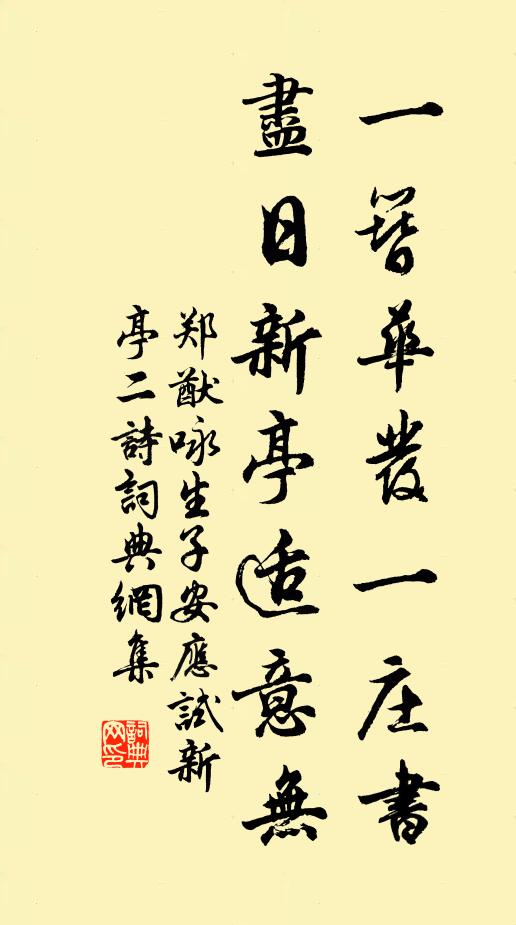 一簪華髮一庄書
盡日新亭适意無
郑猷咏生子安應試新
亭二詩詞典網集
詞典